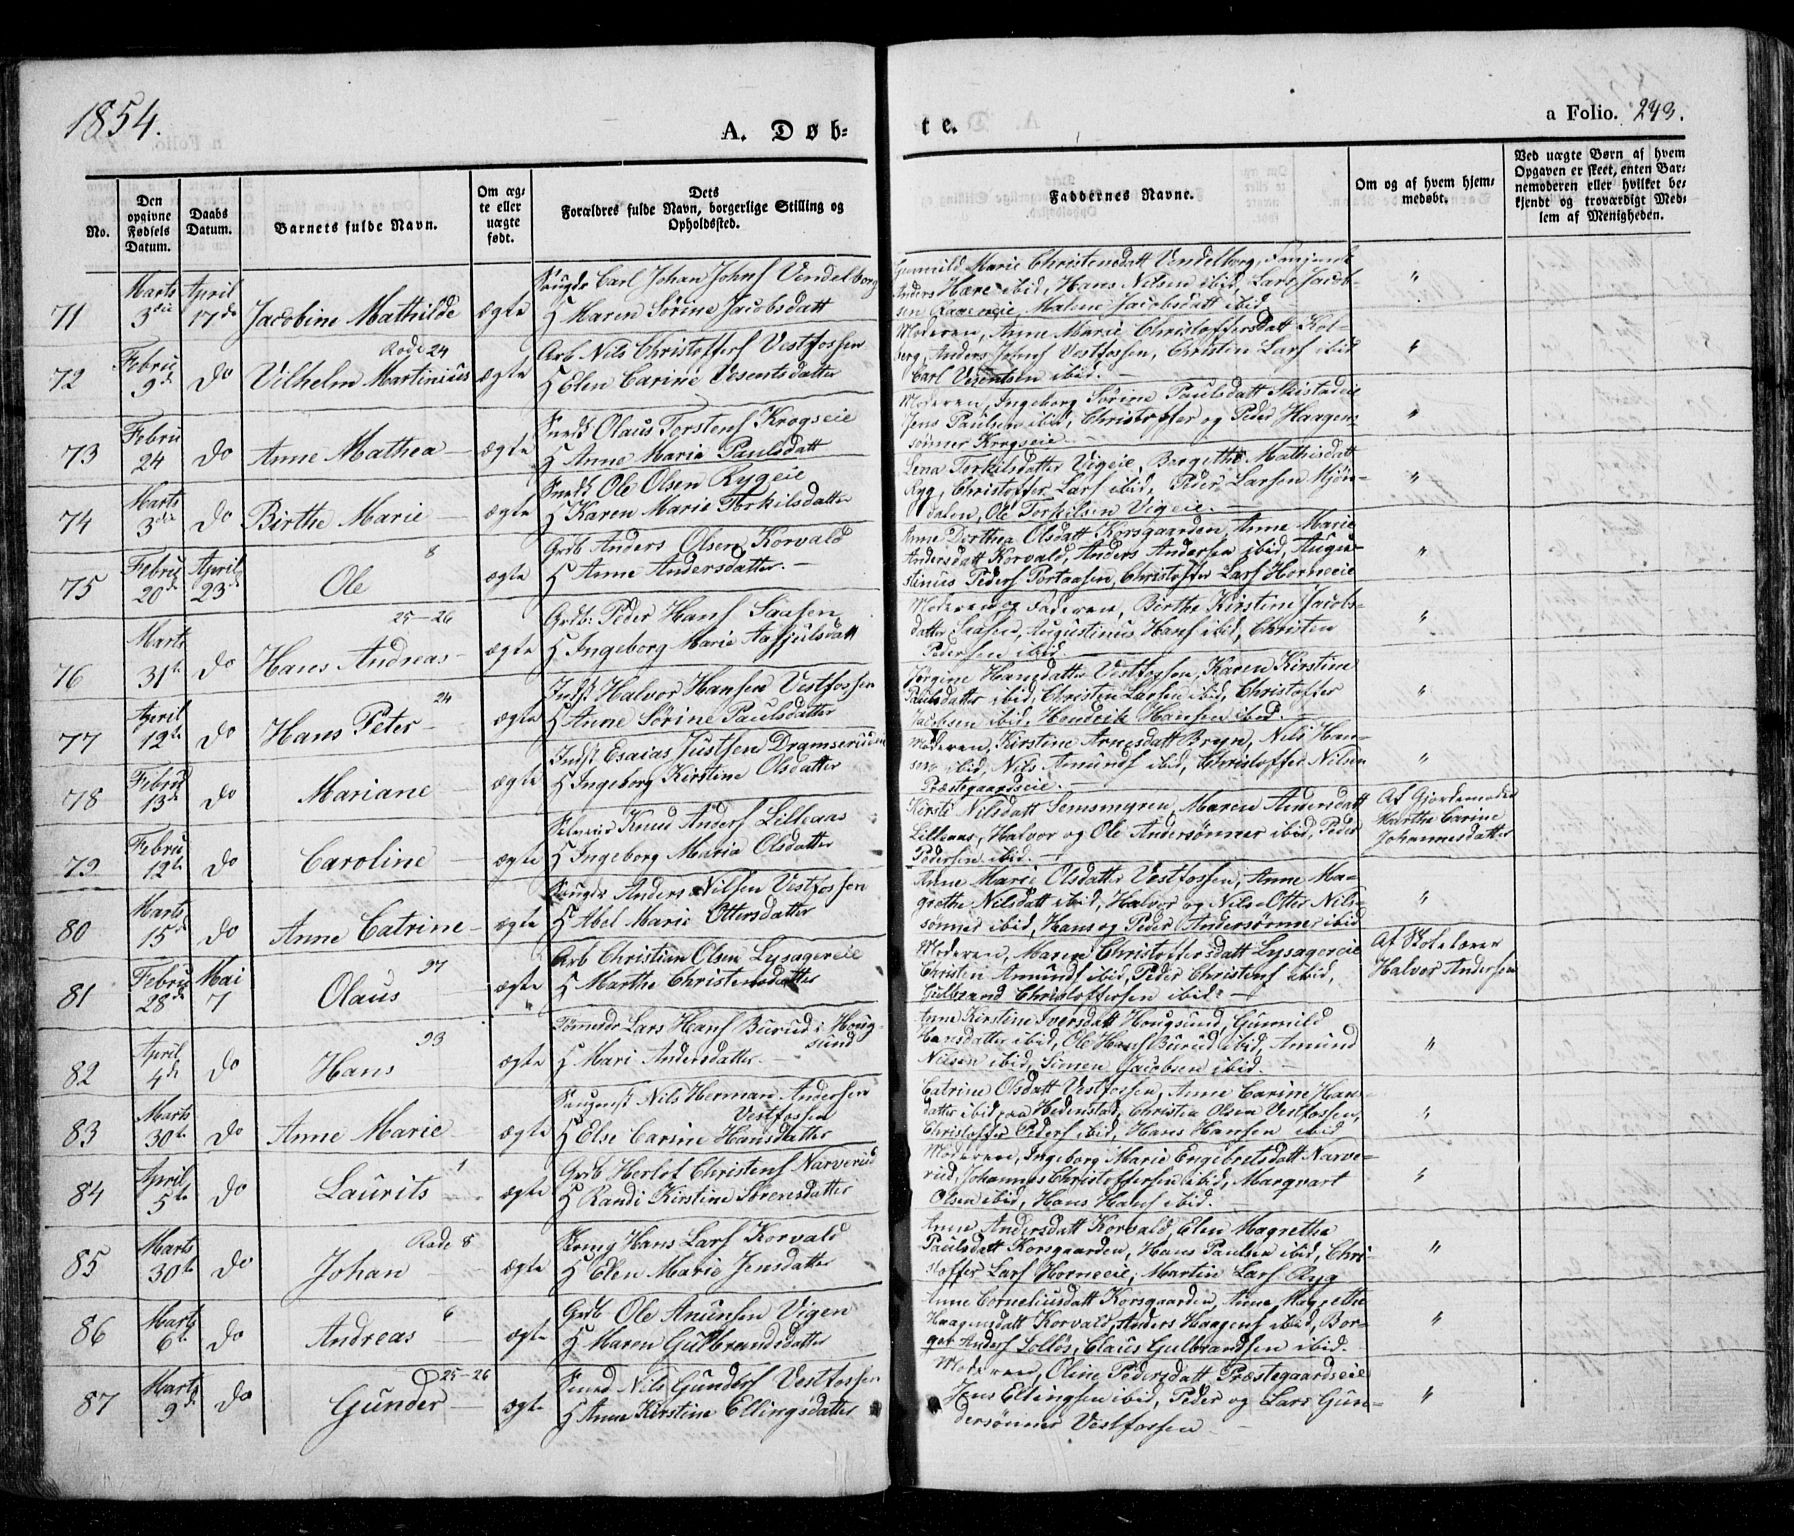 1854.
A. Døb-
te.
a Folio. 243.
No.
Den opgivne Fødsels Datum.
Daabs Datum.
Barnets fulde Navn.
Om ægte eller uægte født.
Dets Forældres fulde Navn, borgerlige Stilling og Opholdssted.
Faddernes Navne.
Om og af hvem hjemmedøbt.
Ved uægte Børn af hvem Opgaven er skeet, enten Barnemoderen eller hvilket bekjendt og troværdigt Medlem af Menigheden.
71 Marts 3die April 17de Jacobine Mathilde ægte
Carl Johan Johns Vendelborg
H Maren Sørine Jacobsdatt
Gunnild Marie Christensdatt Vendelborg,
Anders Hære ibid, Hans Nilsen ibid, Lars Jacob-
sen Malene Jacobsdatt ibid
"
72 Febru 9d Do Vilhelm Martinius ægte
Rode 24
Arb Nils Christoffers Vestfossen
H Elen Carine Vesentsdatter
Moderen, Anne Marie Christoffersdatt Kol-
berg, Anders Johns Vestfossen, Christen Lars ibid
Carl Vesentsen ibid. —
"
73 Febru 24 Do Anne Mathea — ægte
Olaus Torstens Krogseie
H Anne Maria Paulsdatt
Moderen, Ingeborg Sørine Paulsdatt Skistadeie
Jens Paulsen ibid, Christoffer og Peder Haagen-
sønner Krogseie —
"
74 Marts 3die Do Birthe Marie — ægte
Ole Olsen Rygeie
H Karen Marie Torkilsdatter
Lena Torkilsdatter Vigeie, Borgethe Mathisdatt
Ryg, Christoffer Lars ibid, Peder Larsen Mjøn-
dalen, Ole Torkilsen Vigeie. —
"
75 Febru 20de April 23de Ole ægte
8
Grdb Anders Olsen Korvald
H Anne Andersdatter. —
Anne Dorthea Olsdatt Korsgaarden, Anne Marie
Andersdatt Korvald, Anders Andersen ibid, Augu-
stinus Peders Portaasen, Christoffer Lars Horneeie
"
76 Marts 31te Do Hans Andreas — ægte
25-26
Grdb: Peder Hans Saasen
H Ingeborg Marie Asfjulsdatt
Moderen og Faderen, Birthe Kirstine Jacobs-
datter Saasen, Augustinus Hans ibid, Christen
Pedersen ibid.
"
77 April 12te Do Hans Peter — ægte
24
Indst Halvor Hansen Vestfossen
H Anne Sørine Paulsdatter
Jørgine Hansdatter Vestfossen, Karen Kirstine
Paulsdatter ibid, Christen Larsen ibid, Christoffer
Jacobsen ibid, Hendrik Hansen ibid. —
"
78 Febru 13de Do Mariane — ægte
Indst Esaias Justsen Dramserud
H Ingeborg Kirstine Olsdatter
Moderen, Kirstine Arnesdatt Bryn, Nils Han-
sen ibid, Nils Amunds ibid, Christoffer Nilsen
Præstegaardseie.
"
79 Febru 12te Do Caroline — ægte
Selveier Knud Anders Lilleaas
H Ingeborg Maria Olsdatter
Kirsti Nilsdatt Semsmyren, Maren Andersdatt
Lilleaas, Halvor og Ole Andersønner ibid, Peder
Pedersen ibid. —
Af Gjordemoder
Marthe Carine
Johannesdatter
80 Marts 15de Do Anne Catrine — ægte
Anders Nilsen Vestfossen
H Abel Marie Ottersdatter
Anne Marie Olsdatter Vestfossen, Anne Ma-
grethe Nilsdatt ibid, Halvor og Nils Otter Nils-
sønner ibid, Hans og Peder Andersønner ibid
"
81 Febru 28de Mai 7 Olaus ægte
97
Arb Christian Olsen Lysagereie
H Marthe Christensdatter
Moderen, Maren Christoffersdatt Lysagereie
Christen Amunds ibid, Peder Christens ibid,
Gulbrand Christoffersen ibid. —
Af Skolelærer
Halvor Andersen
82 April 4de Do Hans ægte
93
Lars Hans Burud i Houg-
sund
H Mari Andersdatter. —
Anne Kirstine Iversdatt Hougsund, Gunnild
Hansdatter ibid, Ole Hans Burud ibid, Amund
Nilsen ibid, Simen Jacobsen ibid. —
"
83 Marts 30te Do Anne Marie — ægte
Nils Herman Andersen
Vestfossen
H Else Carine Hansdatter
Catrine Olsdatt Vestfossen, Anne Carine Hans-
datter ibid, Hedenstad, Christian Olsen Vestfossen,
Christoffer Peders ibid, Hans Hansen ibid
"
84 April 5te Do Laurits ægte
1
Grdb Herlof Christens Narverud
H Randi Kirstine Sørensdatter
Moderen, Ingeborg Marie Engebretsdatt Narve-
rud, Johannes Christoffersen ibid, Margvart
Olsen ibid, Hans Hans ibid.
"
85 Marts 30te Do Johan ægte
Rode 8
Hans Lars Korvald
H Elen Marie Jensdatter
Anne Andersdatt Korvald, Elen Magrethe
Paulsdatt Korsgaarden, Hans Paulsen ibid, Chri-
stoffer Lars Horneeie, Martin Lars Ryg
"
86 Marts 6te Do Andreas — ægte
6
Grdb Ole Anunsen Vigen
H Maren Gulbrandsdatter
Anne Corneliusdatt Korsgaarden, Anne Magrethe
Haagensdatt Korvald, Anders Haagens ibid, Bor-
ger Anders Lolløs, Claus Gulbrandsen ibid.
"
87 Marts 9de Do Gunder — ægte
25-26
Smed Nils Gunders Vestfossen
H Anne Kirstine Ellingsdatter
Moderen, Oline Pedersdatt Præstegaardseie
Jens Ellingsen ibid, Peder og Lars Gun-
dersønner Vestfossen
"